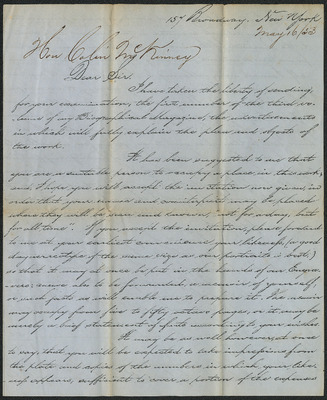 Broadway, New York
May 16/53
Hon Colin McKinney
Dear Sir.
I have taken the liberty of sending,
for your examination, the first number of the third vo-
lume of my Biographical Magazine, the advertisements
in which will fully explain the plan and objects of
the work.
It has been suggested to me that
you are a suitable person to occupy a place in this work,
and I hope you will accept the invitation now given, in
order that your may be placed
where they will be seen and known, "not for a day, but
for all time". If you accept the invitation, please forward
to me at your earliest convenience your likeness, (a good
daguerreotype of the same size as our portraits is best,)
so that it may at once be put in the hands of our Engra-
vers; and also to be forwarded, a memoir of yourself
or such facts as will enable me to prepare it. The memoir
may vary from five to fifty octavo pages, or it may be
merely a brief statement of facts according to your wishes.
It may be as well however at once
to say, that you will be expected to take impressions from
the plate and copies of the number in which your like-
ness appears, sufficient to cover a portion of the expenses